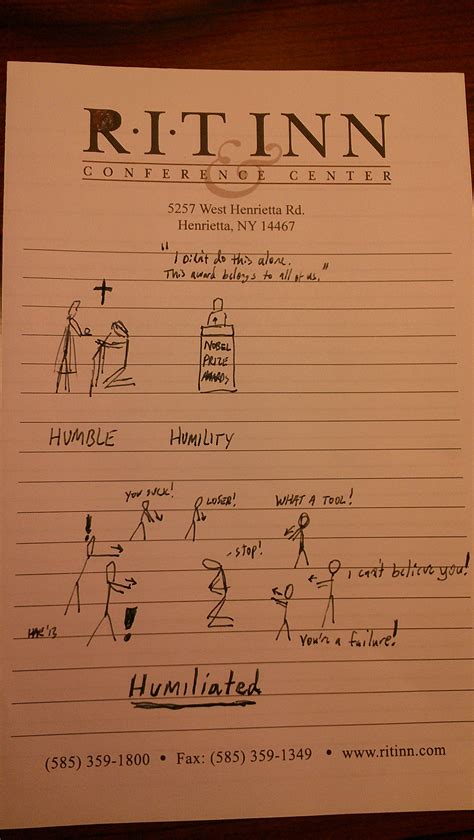 R·I·T INN
&
CONFERENCE CENTER
5257 West Henrietta Rd.
Henrietta, NY 14467
"I Didn't do this alone.
This award belongs to all of us."
NOBEL
PRIZE
AWARDS
HUMBLE
HUMILITY
YOU SUCK!
LOSER!
WHAT A TOOL!
!
-STOP!
I can't believe you!
!
You're a failure!
HUMILIATED
(585) 359-1800 • Fax: (585) 359-1349 • www.ritinn.com